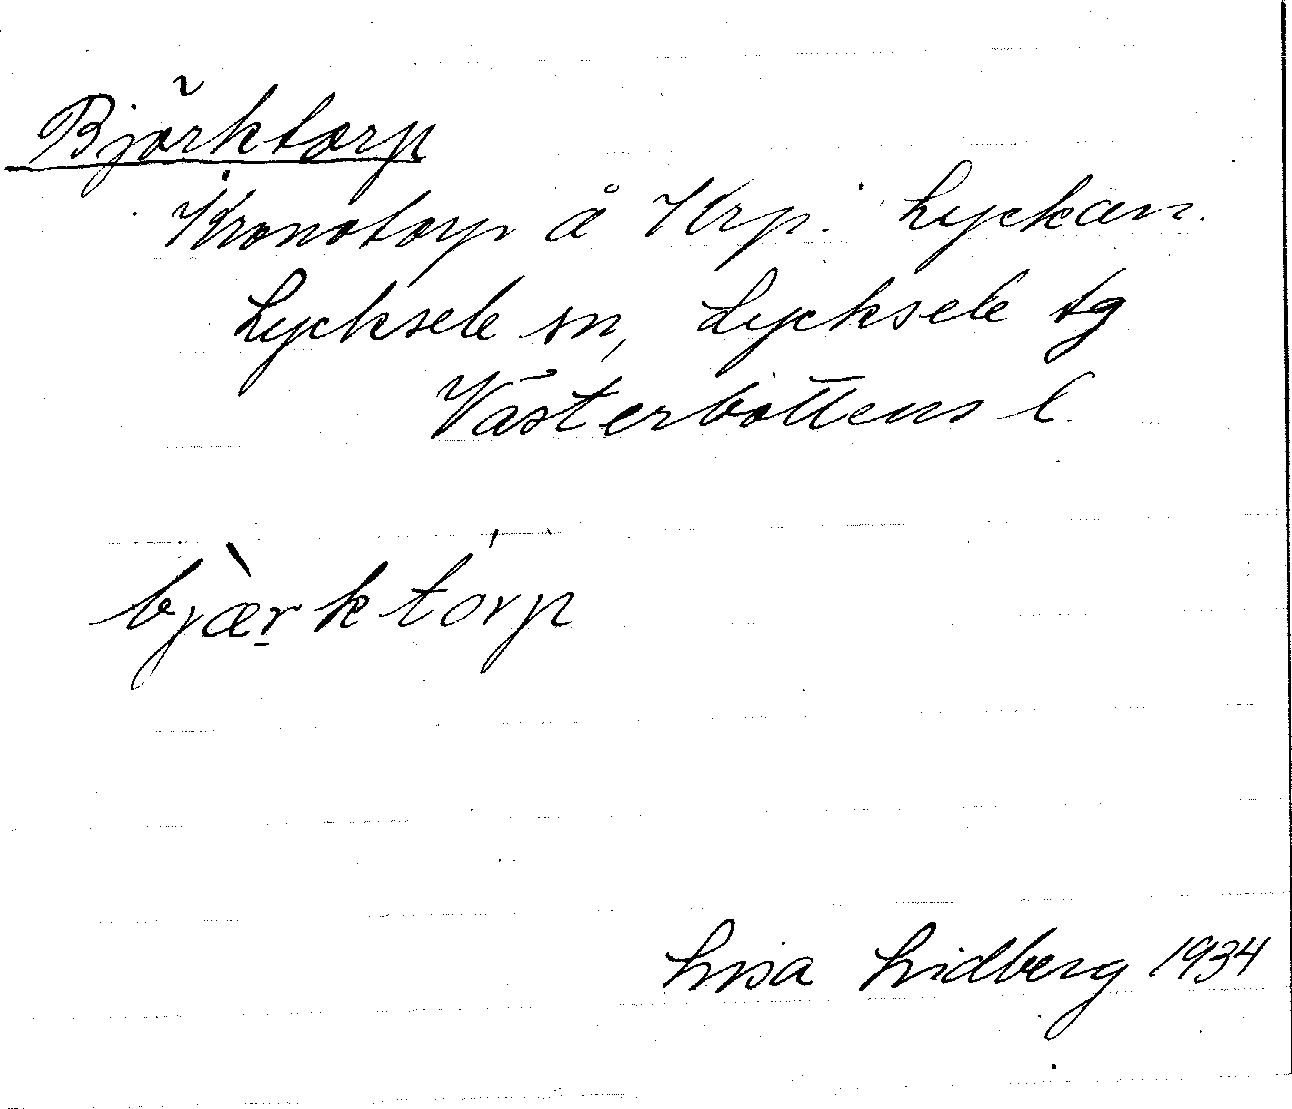 Björktorp
Kronotorp å Krp. Lyckan.
Lycksele sn, Lycksele tg
Västerbottens l.
bjæ̀r̲którp
Lisa Lidberg 1934